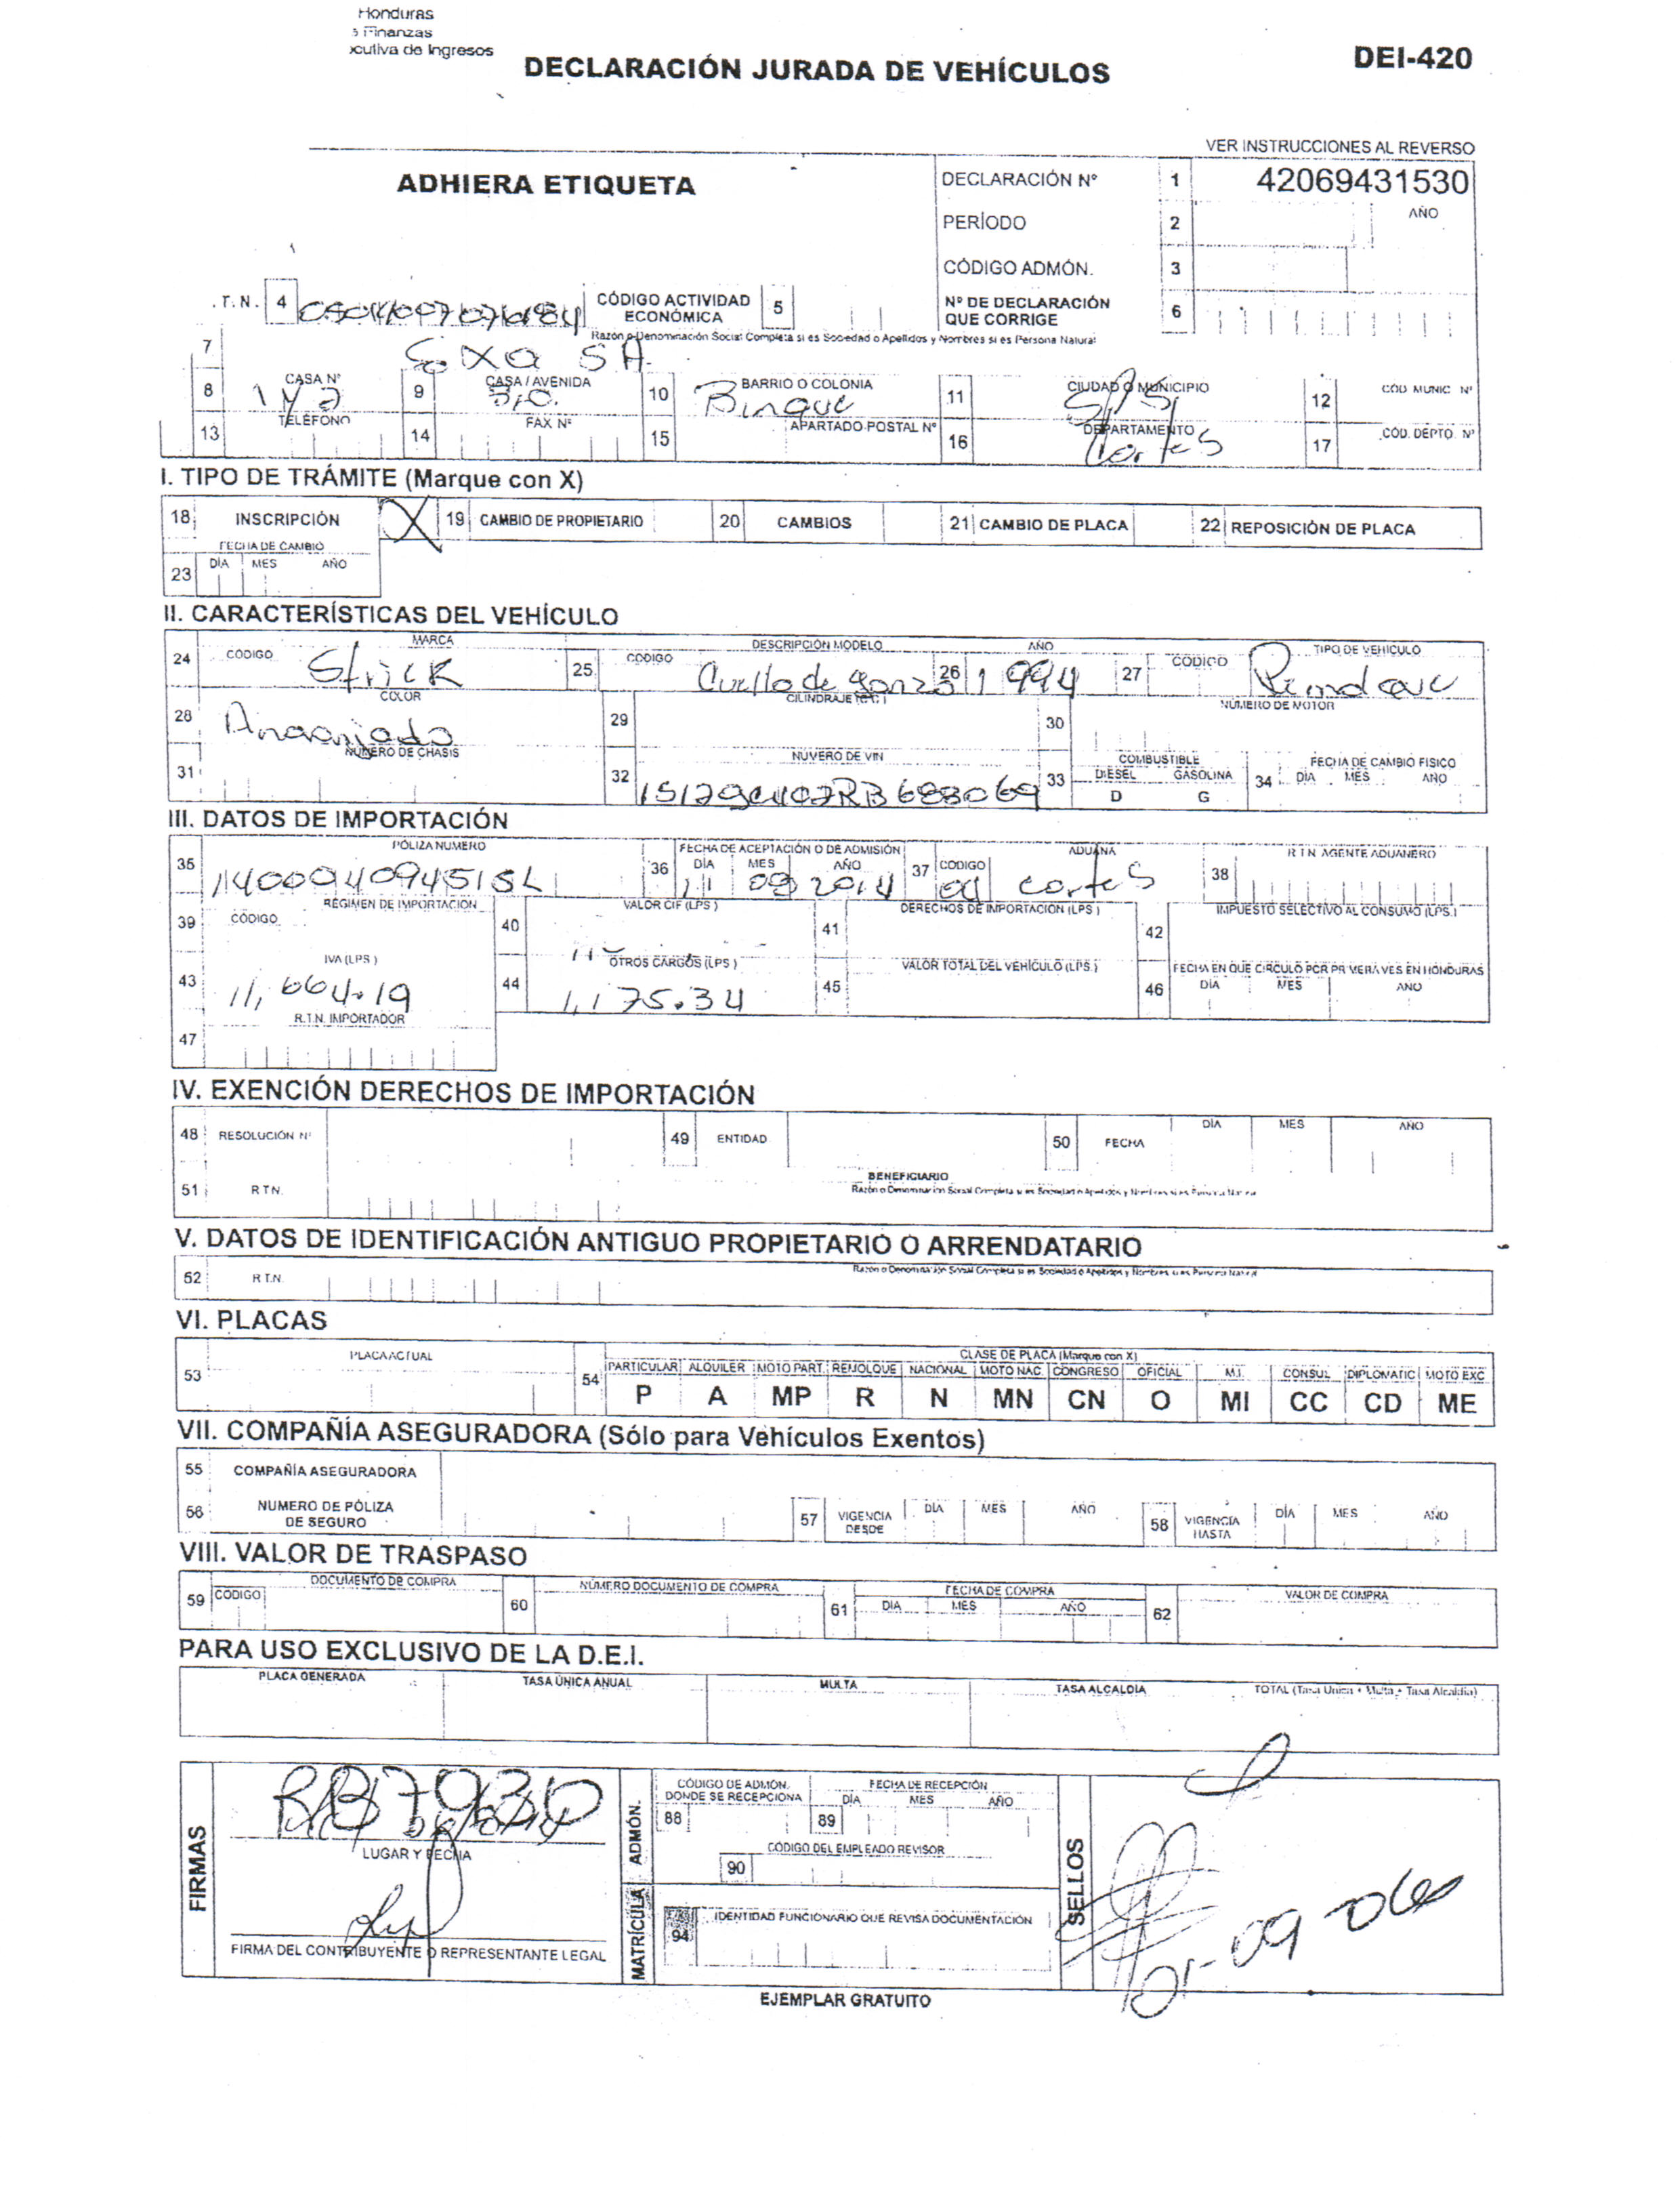 Honduras
Finanzas
cutiva de Ingresos
DECLARACIÓN JURADA DE VEHÍCULOS
DEI-420
VER INSTRUCCIONES AL REVERSO
ADHIERA ETIQUETA
DECLARACIÓN Nº 1 42069431530
PERÍODO 2 AÑO
CÓDIGO ADMÓN. 3
.T.N. 4 CÓDIGO ACTIVIDAD ECONÓMICA 5 Nº DE DECLARACIÓN QUE CORRIGE 6
Razón o Denominación Social Completa si es Sociedad o Apellidos y Nombres si es Persona Natural
7 S.A.
8 CASA Nº 9 CASA / AVENIDA 10 BARRIO O COLONIA 11 CIUDAD O MUNICIPIO 12 CÓD. MUNIC. Nº
1 y 2 S/S
13 TELÉFONO 14 FAX Nº 15 APARTADO POSTAL Nº 16 DEPARTAMENTO 17 CÓD. DEPTO. Nº
Cortes
I. TIPO DE TRÁMITE (Marque con X)
18 INSCRIPCIÓN X 19 CAMBIO DE PROPIETARIO 20 CAMBIOS 21 CAMBIO DE PLACA 22 REPOSICIÓN DE PLACA
FECHA DE CAMBIO
23 DÍA MES AÑO
II. CARACTERÍSTICAS DEL VEHÍCULO
24 CÓDIGO MARCA 25 CODIGO DESCRIPCIÓN MODELO 26 AÑO 27 CÓDIGO TIPO DE VEHICULO
Strick Cuello de ganzo 1994
28 COLOR 29 CILINDRAJE (CC) 30 NÚMERO DE MOTOR
Anaranjado
31 NÚMERO DE CHASIS 32 NÚMERO DE VIN 33 COMBUSTIBLE DIESEL GASOLINA 34 FECHA DE CAMBIO FISICO DÍA MES AÑO
D G
III. DATOS DE IMPORTACIÓN
35 PÓLIZA NUMERO 36 FECHA DE ACEPTACIÓN O DE ADMISIÓN DÍA MES AÑO 37 CODIGO ADUANA 38 R T N AGENTE ADUANERO
11 09 2014 04 cortes
39 CÓDIGO REGIMEN DE IMPORTACION 40 VALOR CIF (LPS.) 41 DERECHOS DE IMPORTACION (LPS.) 42 IMPUESTO SELECTIVO AL CONSUMO (LPS.)
43 IVA (LPS.) 44 OTROS CARGOS (LPS.) 45 VALOR TOTAL DEL VEHÍCULO (LPS.) 46 FECHA EN QUE CIRCULO POR PRIMERA VES EN HONDURAS DÍA MES ANO
11,664.19 1,175.34
47 R.T.N. IMPORTADOR
IV. EXENCIÓN DERECHOS DE IMPORTACIÓN
48 RESOLUCIÓN Nº 49 ENTIDAD 50 FECHA DÍA MES AÑO
51 R T N. BENEFICIARIO
Razón o Denominación Social Completa si es Sociedad o Apellidos y Nombres si es Persona Natural
V. DATOS DE IDENTIFICACIÓN ANTIGUO PROPIETARIO O ARRENDATARIO
52 R T.N. Razón o Denominación Social Completa si es Sociedad o Apellidos y Nombres si es Persona Natural
VI. PLACAS
53 PLACA ACTUAL 54 CLASE DE PLACA (Marque con X)
PARTICULAR ALQUILER MOTO PART. REMOLQUE NACIONAL MOTO NAC. CONGRESO OFICIAL M.I. CONSUL DIPLOMATIC MOTO EXC
P A MP R N MN CN O MI CC CD ME
VII. COMPAÑÍA ASEGURADORA (Sólo para Vehículos Exentos)
55 COMPAÑÍA ASEGURADORA
56 NUMERO DE PÓLIZA DE SEGURO 57 VIGENCIA DESDE DÍA MES AÑO 58 VIGENCIA HASTA DÍA MES AÑO
VIII. VALOR DE TRASPASO
59 CÓDIGO DOCUMENTO DE COMPRA 60 NÚMERO DOCUMENTO DE COMPRA 61 FECHA DE COMPRA DÍA MES AÑO 62 VALOR DE COMPRA
PARA USO EXCLUSIVO DE LA D.E.I.
PLACA GENERADA TASA ÚNICA ANUAL MULTA TASA ALCALDÍA TOTAL (Tasa Única + Multa + Tasa Alcaldía)
FIRMAS
LUGAR Y FECHA
FIRMA DEL CONTRIBUYENTE O REPRESENTANTE LEGAL
MATRÍCULA ADMÓN.
CÓDIGO DE ADMÓN. DONDE SE RECEPCIONA 88 FECHA DE RECEPCIÓN 89 DÍA MES AÑO
CÓDIGO DEL EMPLEADO REVISOR
90
94 IDENTIDAD FUNCIONARIO QUE REVISA DOCUMENTACIÓN
SELLOS
EJEMPLAR GRATUITO